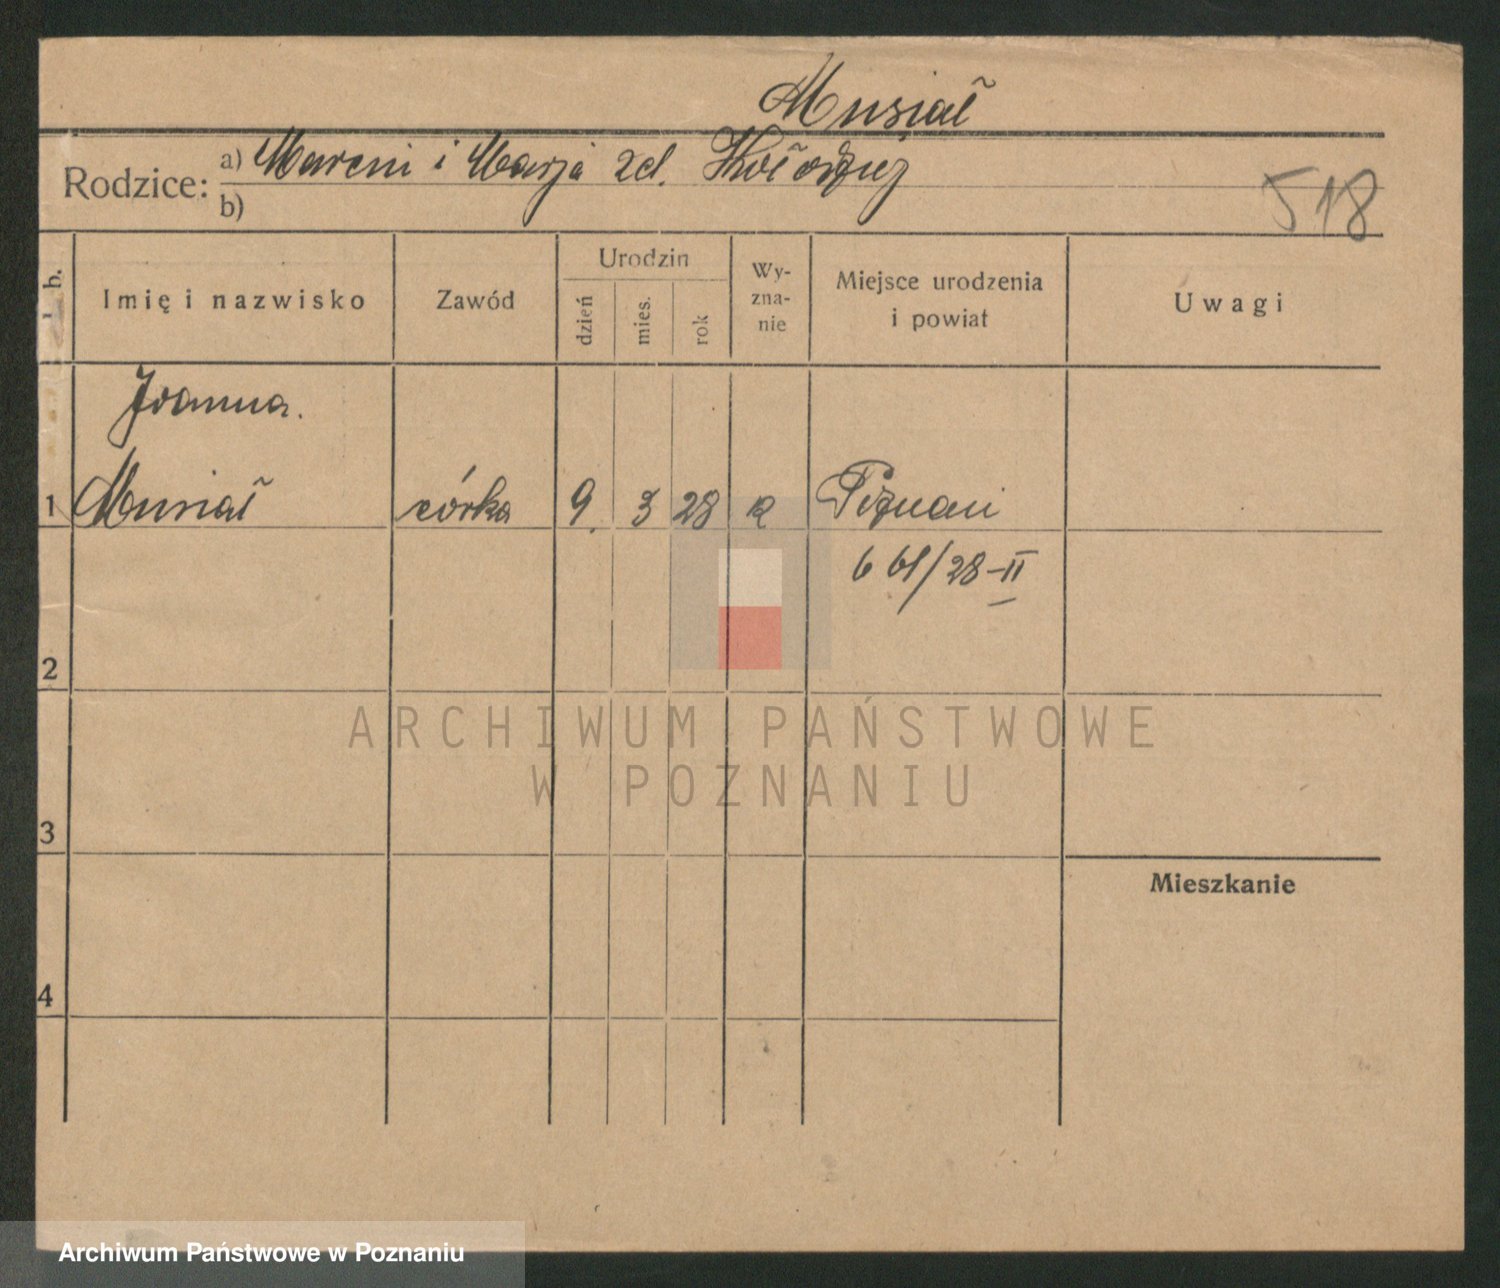 Musiał
Rodzice: a) Marcin i Marja zd.
b)
518
l. b.
Imię i nazwisko
Zawód
Urodzin
dzień
mies.
rok
Wy-
zna-
nie
Miejsce urodzenia
i powiat
Uwagi
Joanna.
1 Musiał córka 9. 3 28 k Poznań
661/28-II
2
3
4
Mieszkanie
ARCHIWUM PAŃSTWOWE
W POZNANIU
Archiwum Państwowe w Poznaniu